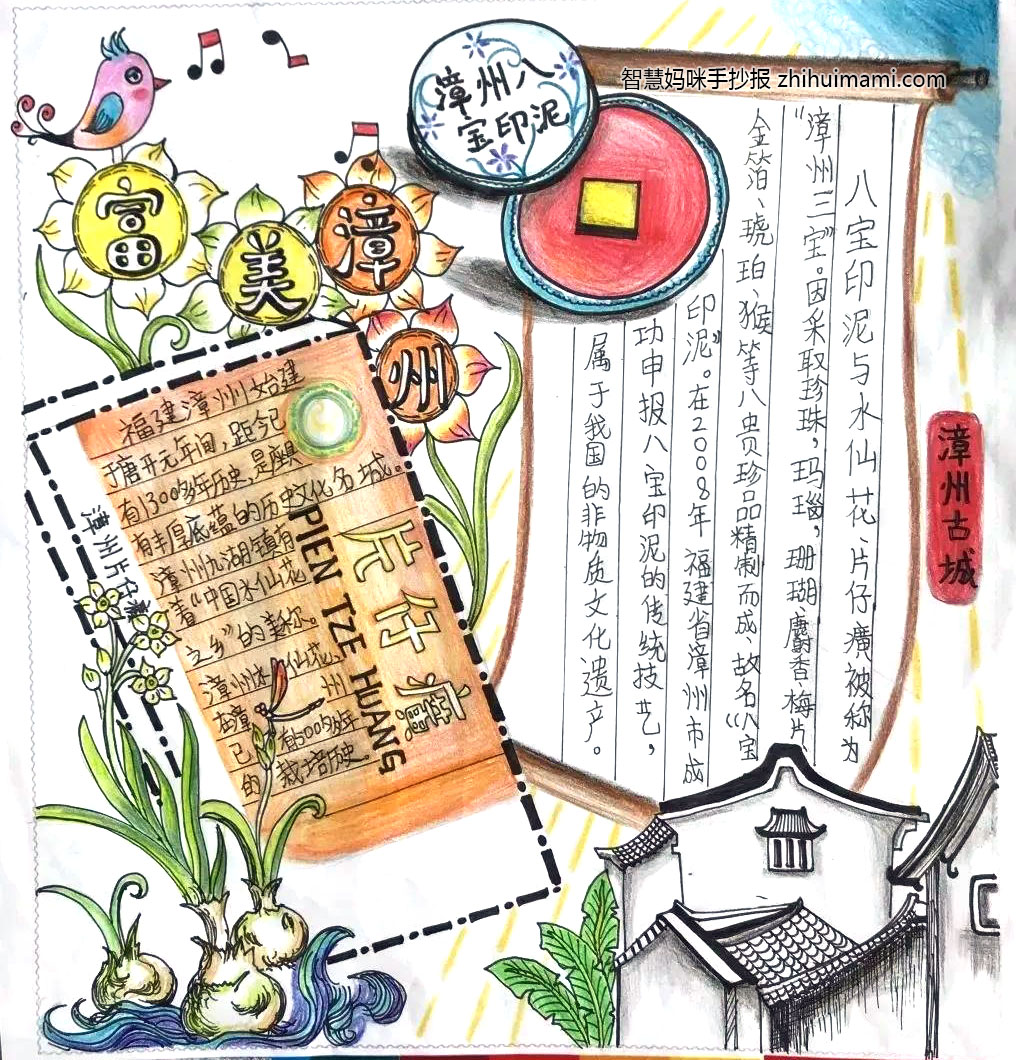 智慧妈咪手抄报 zhihuimami.com
漳州八
宝印泥
富
美
漳
州
八宝印泥与水仙花、片仔癀被称为
“漳州三宝”。因采取珍珠,玛瑙,珊瑚、麝香、梅片、
金箔、琥珀、猴等八贵珍品精制而成、故名“八宝
印泥”。在2008年福建省漳州市成
功申报八宝印泥的传统技艺,
属于我国的非物质文化遗产。
漳州古城
福建漳州州始建
于唐开元年间,距今已
有1300多年历史,是座具
有丰厚底蕴的历史文化名城。
漳州九湖镇有
着“中国水仙花
之乡”的美称。
漳州水仙花,
在漳州
已有500多年
的栽培历史。
片仔癀
PIEN TZE HUANG
漳州片仔癀